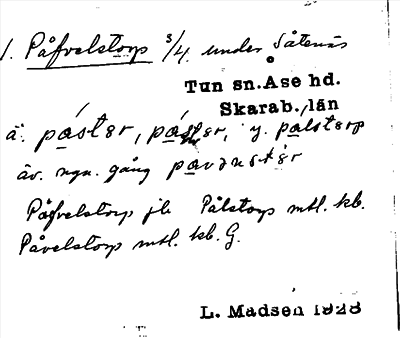 1. Påfvelstorp 3/4 under Såtenäs
Tun sn. Åse hd.
Skarab. län
ä. påstər, påstər, y. pålstorp
äv. ngn. gång pavəustər
Påfvelstorp jb. Pålstorp mtl. kb.
Påvelstorp mtl. kb. G.
L. Madsen 1928